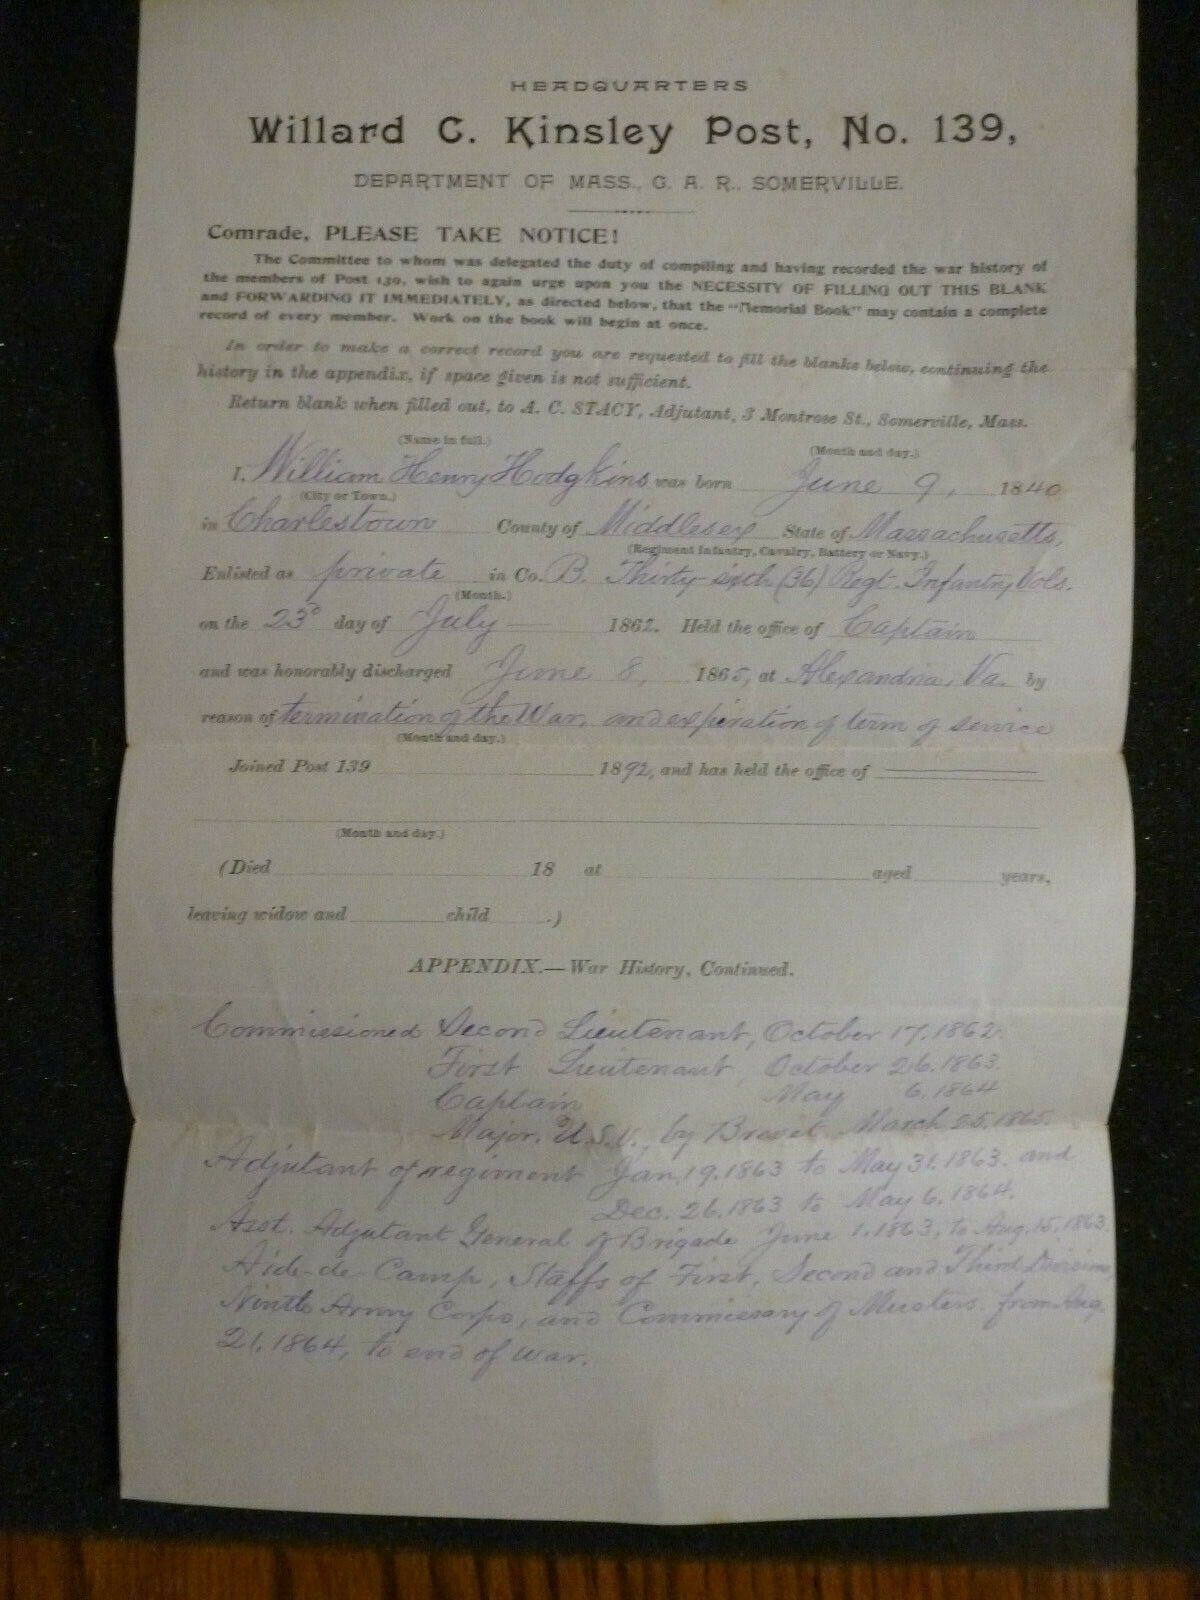 HEADQUARTERS
Willard C. Kinsley Post, No. 139,
DEPARTMENT OF MASS., G. A. R., SOMERVILLE.
Comrade, PLEASE TAKE NOTICE!
The Committee to whom was delegated the duty of compiling and having recorded the war history of
the members of Post 139, wish to again urge upon you the NECESSITY OF FILLING OUT THIS BLANK
and FORWARDING IT IMMEDIATELY, as directed below, that the "Memorial Book" may contain a complete
record of every member. Work on the book will begin at once.
In order to make a correct record you are requested to fill the blanks below, continuing the
history in the appendix, if space given is not sufficient.
Return blank when filled out, to A. C. STACY, Adjutant, 3 Montrose St., Somerville, Mass.
(Name in full.) (Month and day.)
I, William Henry Hodgkins was born June 9, 1840
(City or Town.)
in Charlestown County of Middlesex State of Massachusetts,
(Regiment Infantry, Cavalry, Battery or Navy.)
Enlisted as private in Co. B. Thirty-sixth (36) Regt. Infantry Vols.
(Month.)
on the 23d day of July — 1862. Held the office of Captain
and was honorably discharged June 8, 1865, at Alexandria, Va. by
reason of termination of the War, and expiration of term of service
(Month and day.)
Joined Post 139 1892, and has held the office of
(Month and day.)
(Died 18 at aged years,
leaving widow and child .)
APPENDIX.—War History, Continued.
Commissioned Second Lieutenant, October 17, 1862.
First Lieutenant, October 26, 1863.
Captain May 6, 1864
Major, U.S.V., by Brevet March 25, 1865.
Adjutant of regiment Jan. 19, 1863 to May 31, 1863. and
Dec. 26, 1863 to May 6, 1864.
Asst. Adjutant General of Brigade June 1, 1863, to Aug. 15, 1863
Aide-de-Camp, Staffs of First, Second and Third Divisions,
Ninth Army Corps, and Commissary of Musters from Aug.
21, 1864, to end of war.